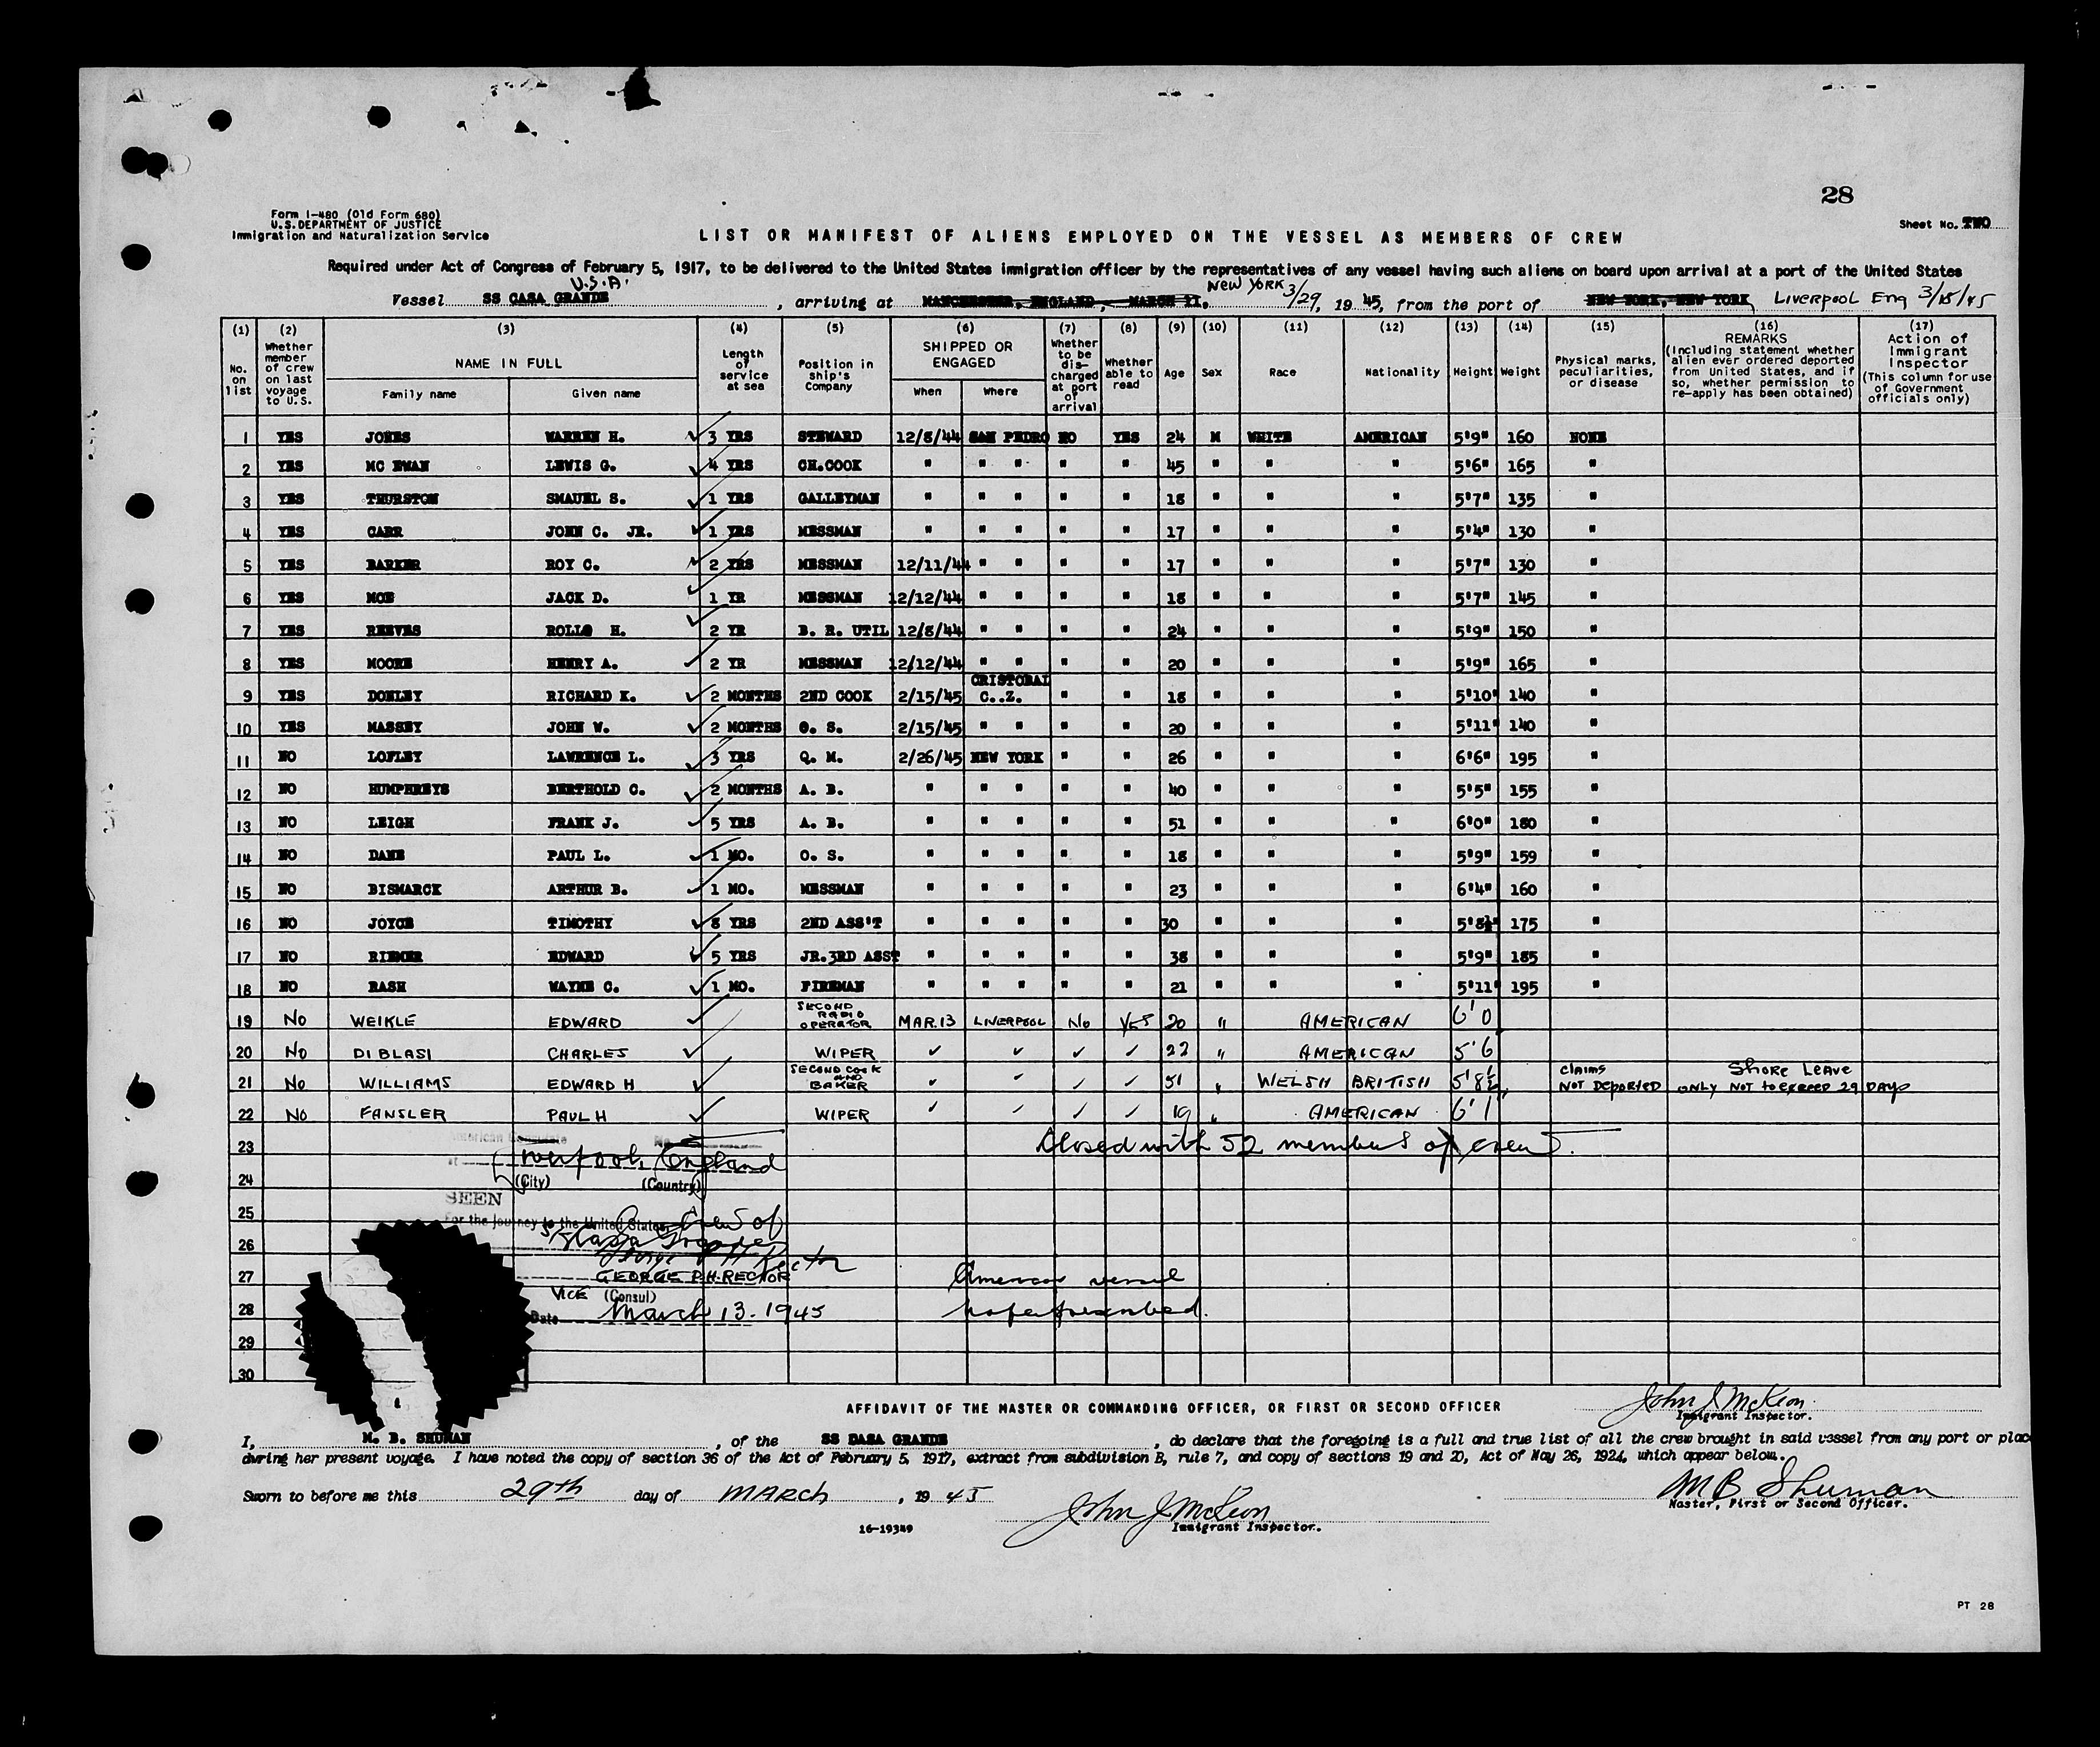 28
Form I-480 (Old Form 680)
U.S. DEPARTMENT OF JUSTICE
Immigration and Naturalization Service
Sheet No. TWO
LIST OR MANIFEST OF ALIENS EMPLOYED ON THE VESSEL AS MEMBERS OF CREW
Required under Act of Congress of February 5, 1917, to be delivered to the United States immigration officer by the representatives of any vessel having such aliens on board upon arrival at a port of the United States
U.S.A.
Vessel SS CASA GRANDE, arriving at MANCHESTER, ENGLAND, MARCH 11, NEW YORK 3/29, 1945, from the port of NEW YORK, NEW YORK Liverpool Eng 3/15/45
(1) (2) (3) (4) (5) (6) (7) (8) (9) (10) (11) (12) (13) (14) (15) (16) (17)
No. on list
Whether member of crew on last voyage to U.S.
NAME IN FULL
Family name Given name
Length of service at sea
Position in ship's Company
SHIPPED OR ENGAGED
When Where
Whether to be discharged at port of arrival
Whether able to read
Age Sex Race Nationality Height Weight
Physical marks, peculiarities, or disease
REMARKS (Including statement whether alien ever ordered deported from United States, and if so, whether permission to re-apply has been obtained)
Action of Immigrant Inspector (This column for use of Government officials only)
1 YES JONES WARREN H. ✓ 3 YRS STEWARD 12/8/44 SAN PEDRO NO YES 24 M WHITE AMERICAN 5'9" 160 NONE
2 YES MC EWAN LEWIS G. ✓ 4 YRS CH.COOK " " " " " 45 " " " 5'6" 165 "
3 YES THURSTON SMAUEL S. ✓ 1 YRS GALLEYMAN " " " " " 18 " " " 5'7" 135 "
4 YES CARR JOHN C. JR. ✓ 1 YRS MESSMAN " " " " " 17 " " " 5'4" 130 "
5 YES BARKER ROY C. ✓ 2 YRS MESSMAN 12/11/44 " " " " 17 " " " 5'7" 130 "
6 YES MOE JACK D. ✓ 1 YR MESSMAN 12/12/44 " " " " 18 " " " 5'7" 145 "
7 YES REEVES ROLLO H. ✓ 2 YR B. R. UTIL 12/8/44 " " " " 24 " " " 5'9" 150 "
8 YES MOORE HENRY A. ✓ 2 YR MESSMAN 12/12/44 " " " " 20 " " " 5'9" 165 "
9 YES DONLEY RICHARD K. ✓ 2 MONTHS 2ND COOK 2/15/45 CRISTOBAL C..Z. " " 18 " " " 5'10" 140 "
10 YES MASSEY JOHN W. ✓ 2 MONTHS O. S. 2/15/45 " " " " 20 " " " 5'11" 140 "
11 NO LOFLEY LAWRENCE L. ✓ 3 YRS Q. M. 2/26/45 NEW YORK " " 26 " " " 6'6" 195 "
12 NO HUMPHREYS BERTHOLD C. ✓ 2 MONTHS A. B. " " " " " 40 " " " 5'5" 155 "
13 NO LEIGH FRANK J. ✓ 5 YRS A. B. " " " " " 51 " " " 6'0" 180 "
14 NO DANE PAUL L. ✓ 1 MO. O. S. " " " " " 18 " " " 5'9" 159 "
15 NO BISMARCK ARTHUR B. ✓ 1 MO. MESSMAN " " " " " 23 " " " 6'4" 160 "
16 NO JOYCE TIMOTHY ✓ 8 YRS 2ND ASS'T " " " " " 30 " " " 5'8½" 175 "
17 NO RIEMER EDWARD ✓ 5 YRS JR.3RD ASST " " " " " 38 " " " 5'9" 185 "
18 NO RASH WAYNE C. ✓ 1 MO. FIREMAN " " " " " 21 " " " 5'11" 195 "
19 No WEIKLE EDWARD ✓ SECOND RADIO OPERATOR MAR.13 LIVERPOOL No YES 20 " AMERICAN 6'0
20 No DI BLASI CHARLES ✓ WIPER ✓ ✓ ✓ ✓ 22 " AMERICAN 5'6
21 No WILLIAMS EDWARD H ✓ SECOND COOK AND BAKER ✓ ✓ ✓ ✓ 51 " WELSH BRITISH 5'8½" claims NOT DEPORTED Shore Leave only NOT to exceed 29 DAYS
22 No FANSLER PAUL H ✓ WIPER ✓ ✓ ✓ ✓ 19 " AMERICAN 6'1"
23 Closed with 52 members of crew.
American Consulate No.
Liverpool, England
24 (City) (Country)
SEEN
25 For the journey to the United States Crew of
26 SS Casa Grande
George P H Rector
27 GEORGE P.H. RECTOR American vessel
VICE (Consul)
28 Date March 13. 1945
29
30
AFFIDAVIT OF THE MASTER OR COMMANDING OFFICER, OR FIRST OR SECOND OFFICER
John J McKeon
Immigrant Inspector.
I, M. B. SHUMAN, of the SS BASA GRANDE, do declare that the foregoing is a full and true list of all the crew brought in said vessel from any port or plac
during her present voyage. I have noted the copy of section 36 of the Act of February 5, 1917, extract from subdivision B, rule 7, and copy of sections 19 and 20, Act of May 26, 1924, which appear below.
Sworn to before me this 29th day of MARCH, 19 45
M B Shuman
Master, First or Second Officer.
John J McKeon
Immigrant Inspector.
16-19349
PT 28